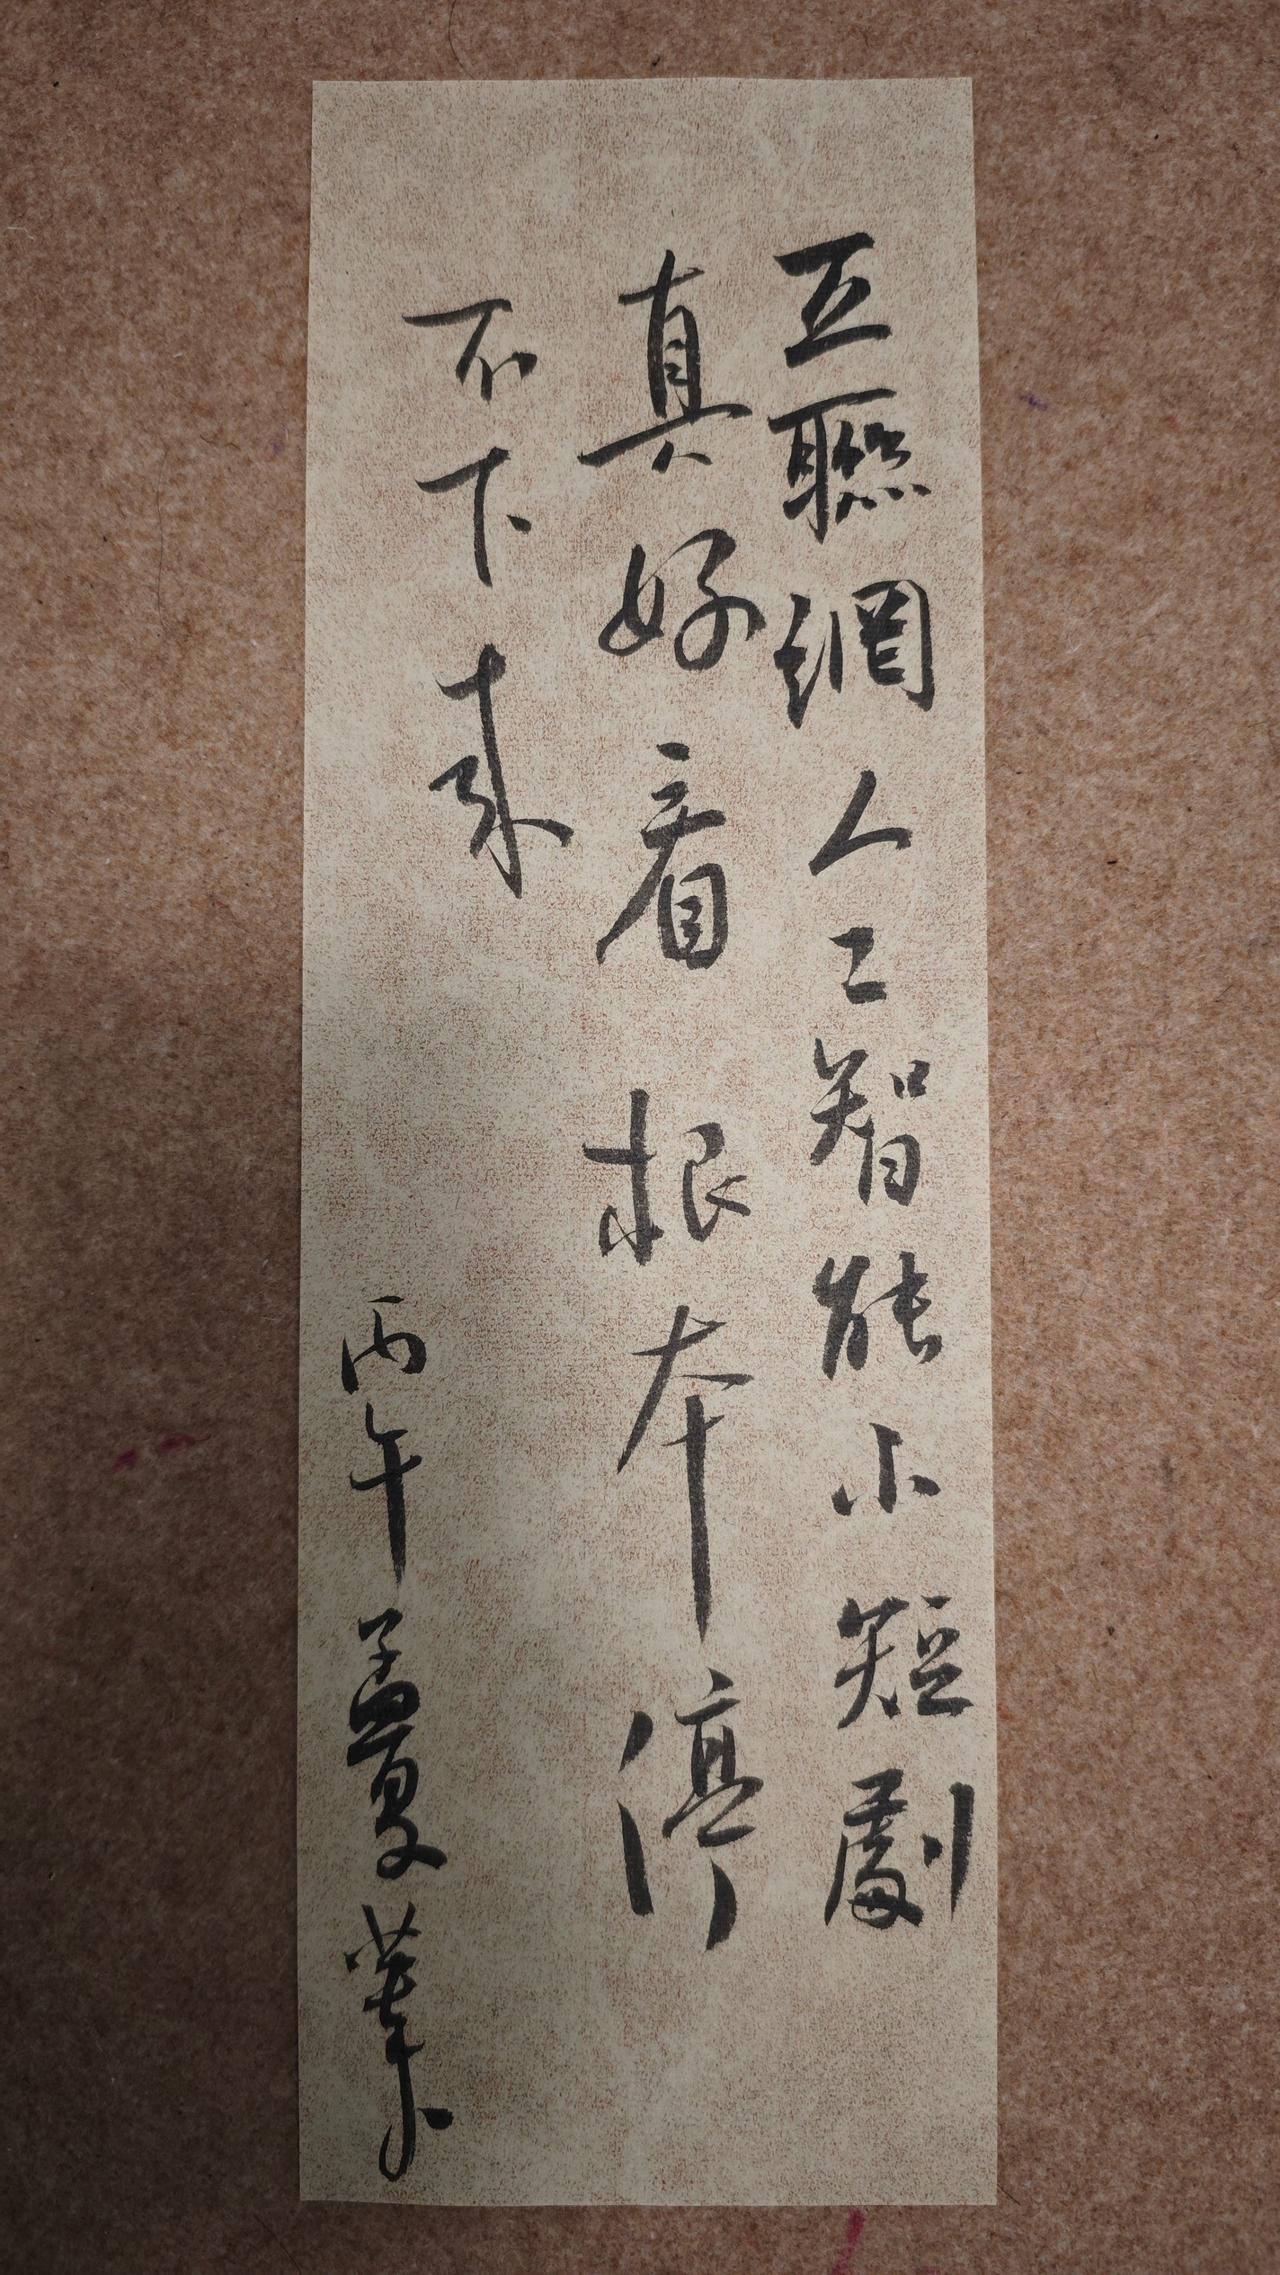 互聯網人工智能小短劇
真好看根本停
不下來
丙午孟夏業